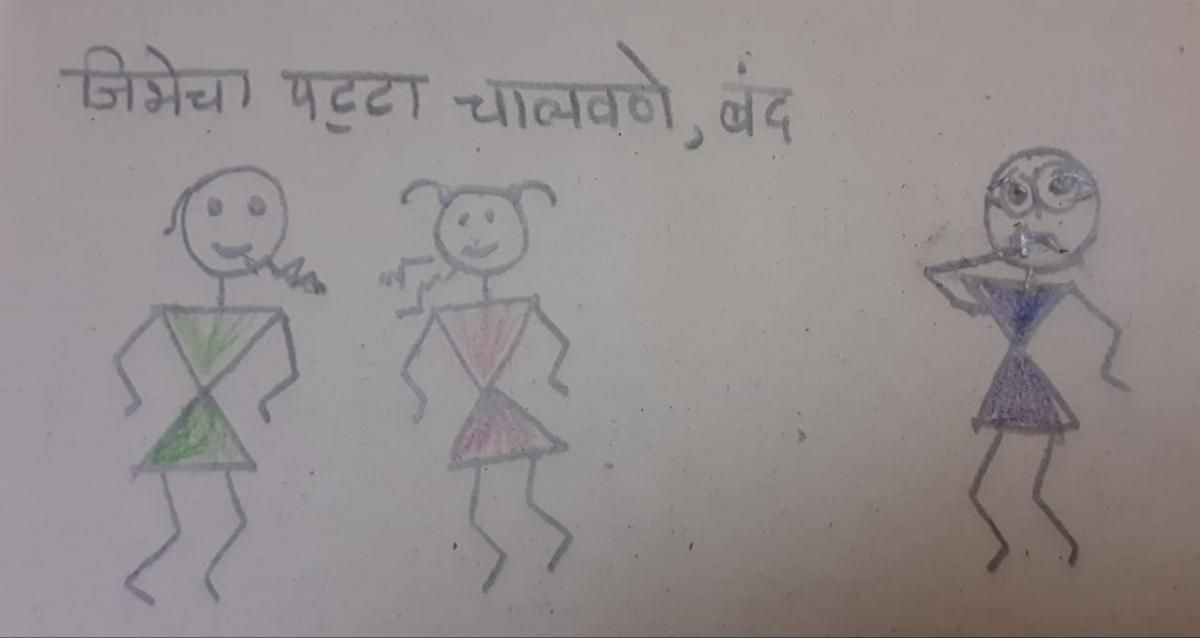 जिभेचा पट्टा चालवणे, बंद